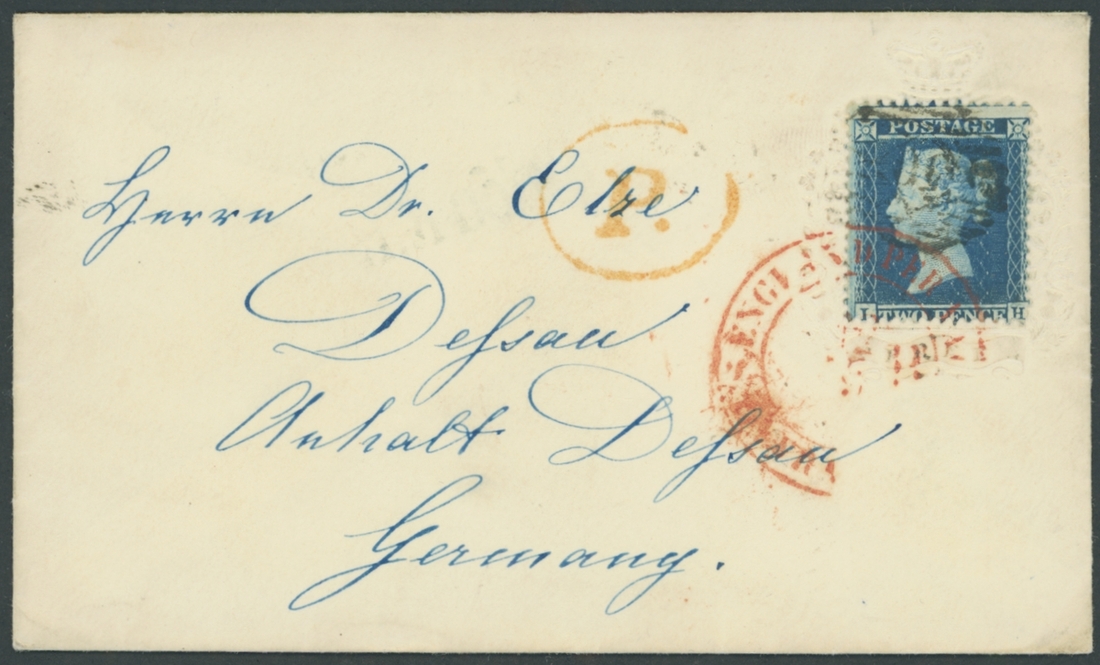 Herrn Dr. Elze
P.
Dessau
Anhalt Dessau
Germany.
POSTAGE
I TWO PENCE H